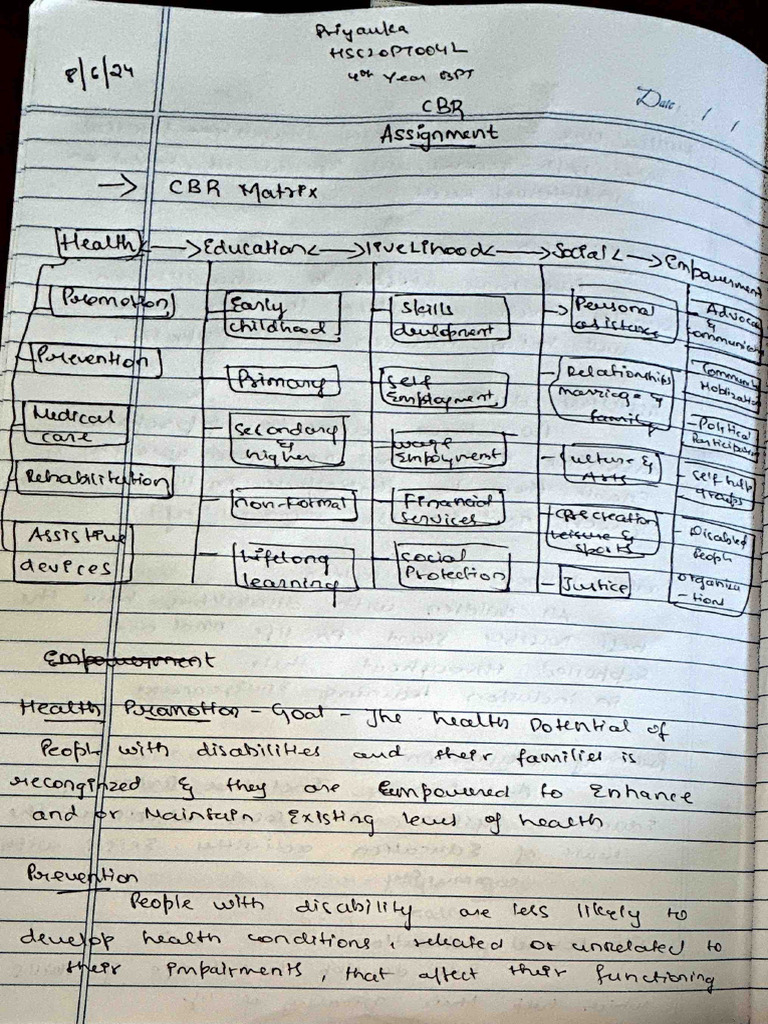 Priyanka
HSC20PT004L
8/6/24
4th Year BPT
CBR
Date: / /
Assignment
→ CBR Matrix
Health ↔ Education ↔ livelihood ↔ Social ↔ Empowerment
Promotion
Prevention
Medical
care
Rehabilitation
Assistive
devices
Early
childhood
Primary
Secondary
& higher
non-formal
Lifelong
learning
Skills
development
Self
Employment
wage
Empoyment
Financial
Services
Social
Protection
Personal
assistance
Relationships
marriage &
family
Culture &
Arts
Recreation
leisure &
sports
Justice
Advocac
&
communicati
Community
Mobilizatio
Political
Participation
Self help
groups
Disabled
People
organiza
-tion
Empowerment
Health Promotion - Goal - The health Potential of
People with disabilities and their families is
recongnized & they are Empowered to Enhance
and or Maintain Existing level of health
Prevention
People with disability are less likely to
develop health conditions, related or unrelated to
their impairments, that affect their functioning